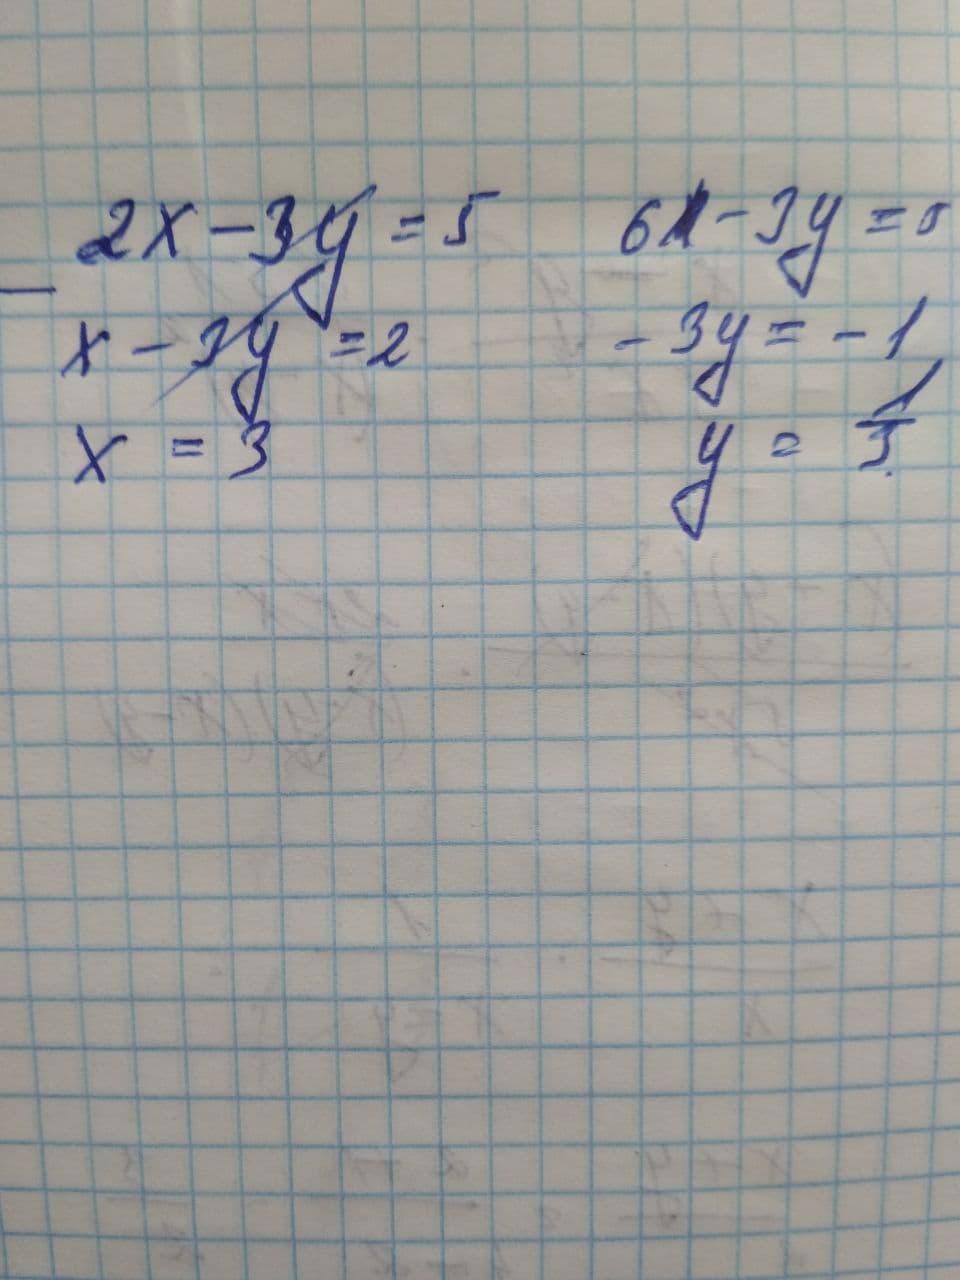 2x - 3y = 5
-
x - 3y = 2
x = 3
6 - 3y = 5
- 3y = - 1
y = 1/3